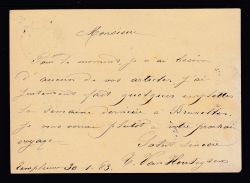 Monsieur
Pour le moment, je n'ai besoin
d'aucun de vos articles, j'ai
justement fait quelques emplettes
la semaine dernière à Bruxelles
je vous verrai plutôt à votre prochain
voyage.
Salut sincère
Templeuve 30-1-83. C. Van